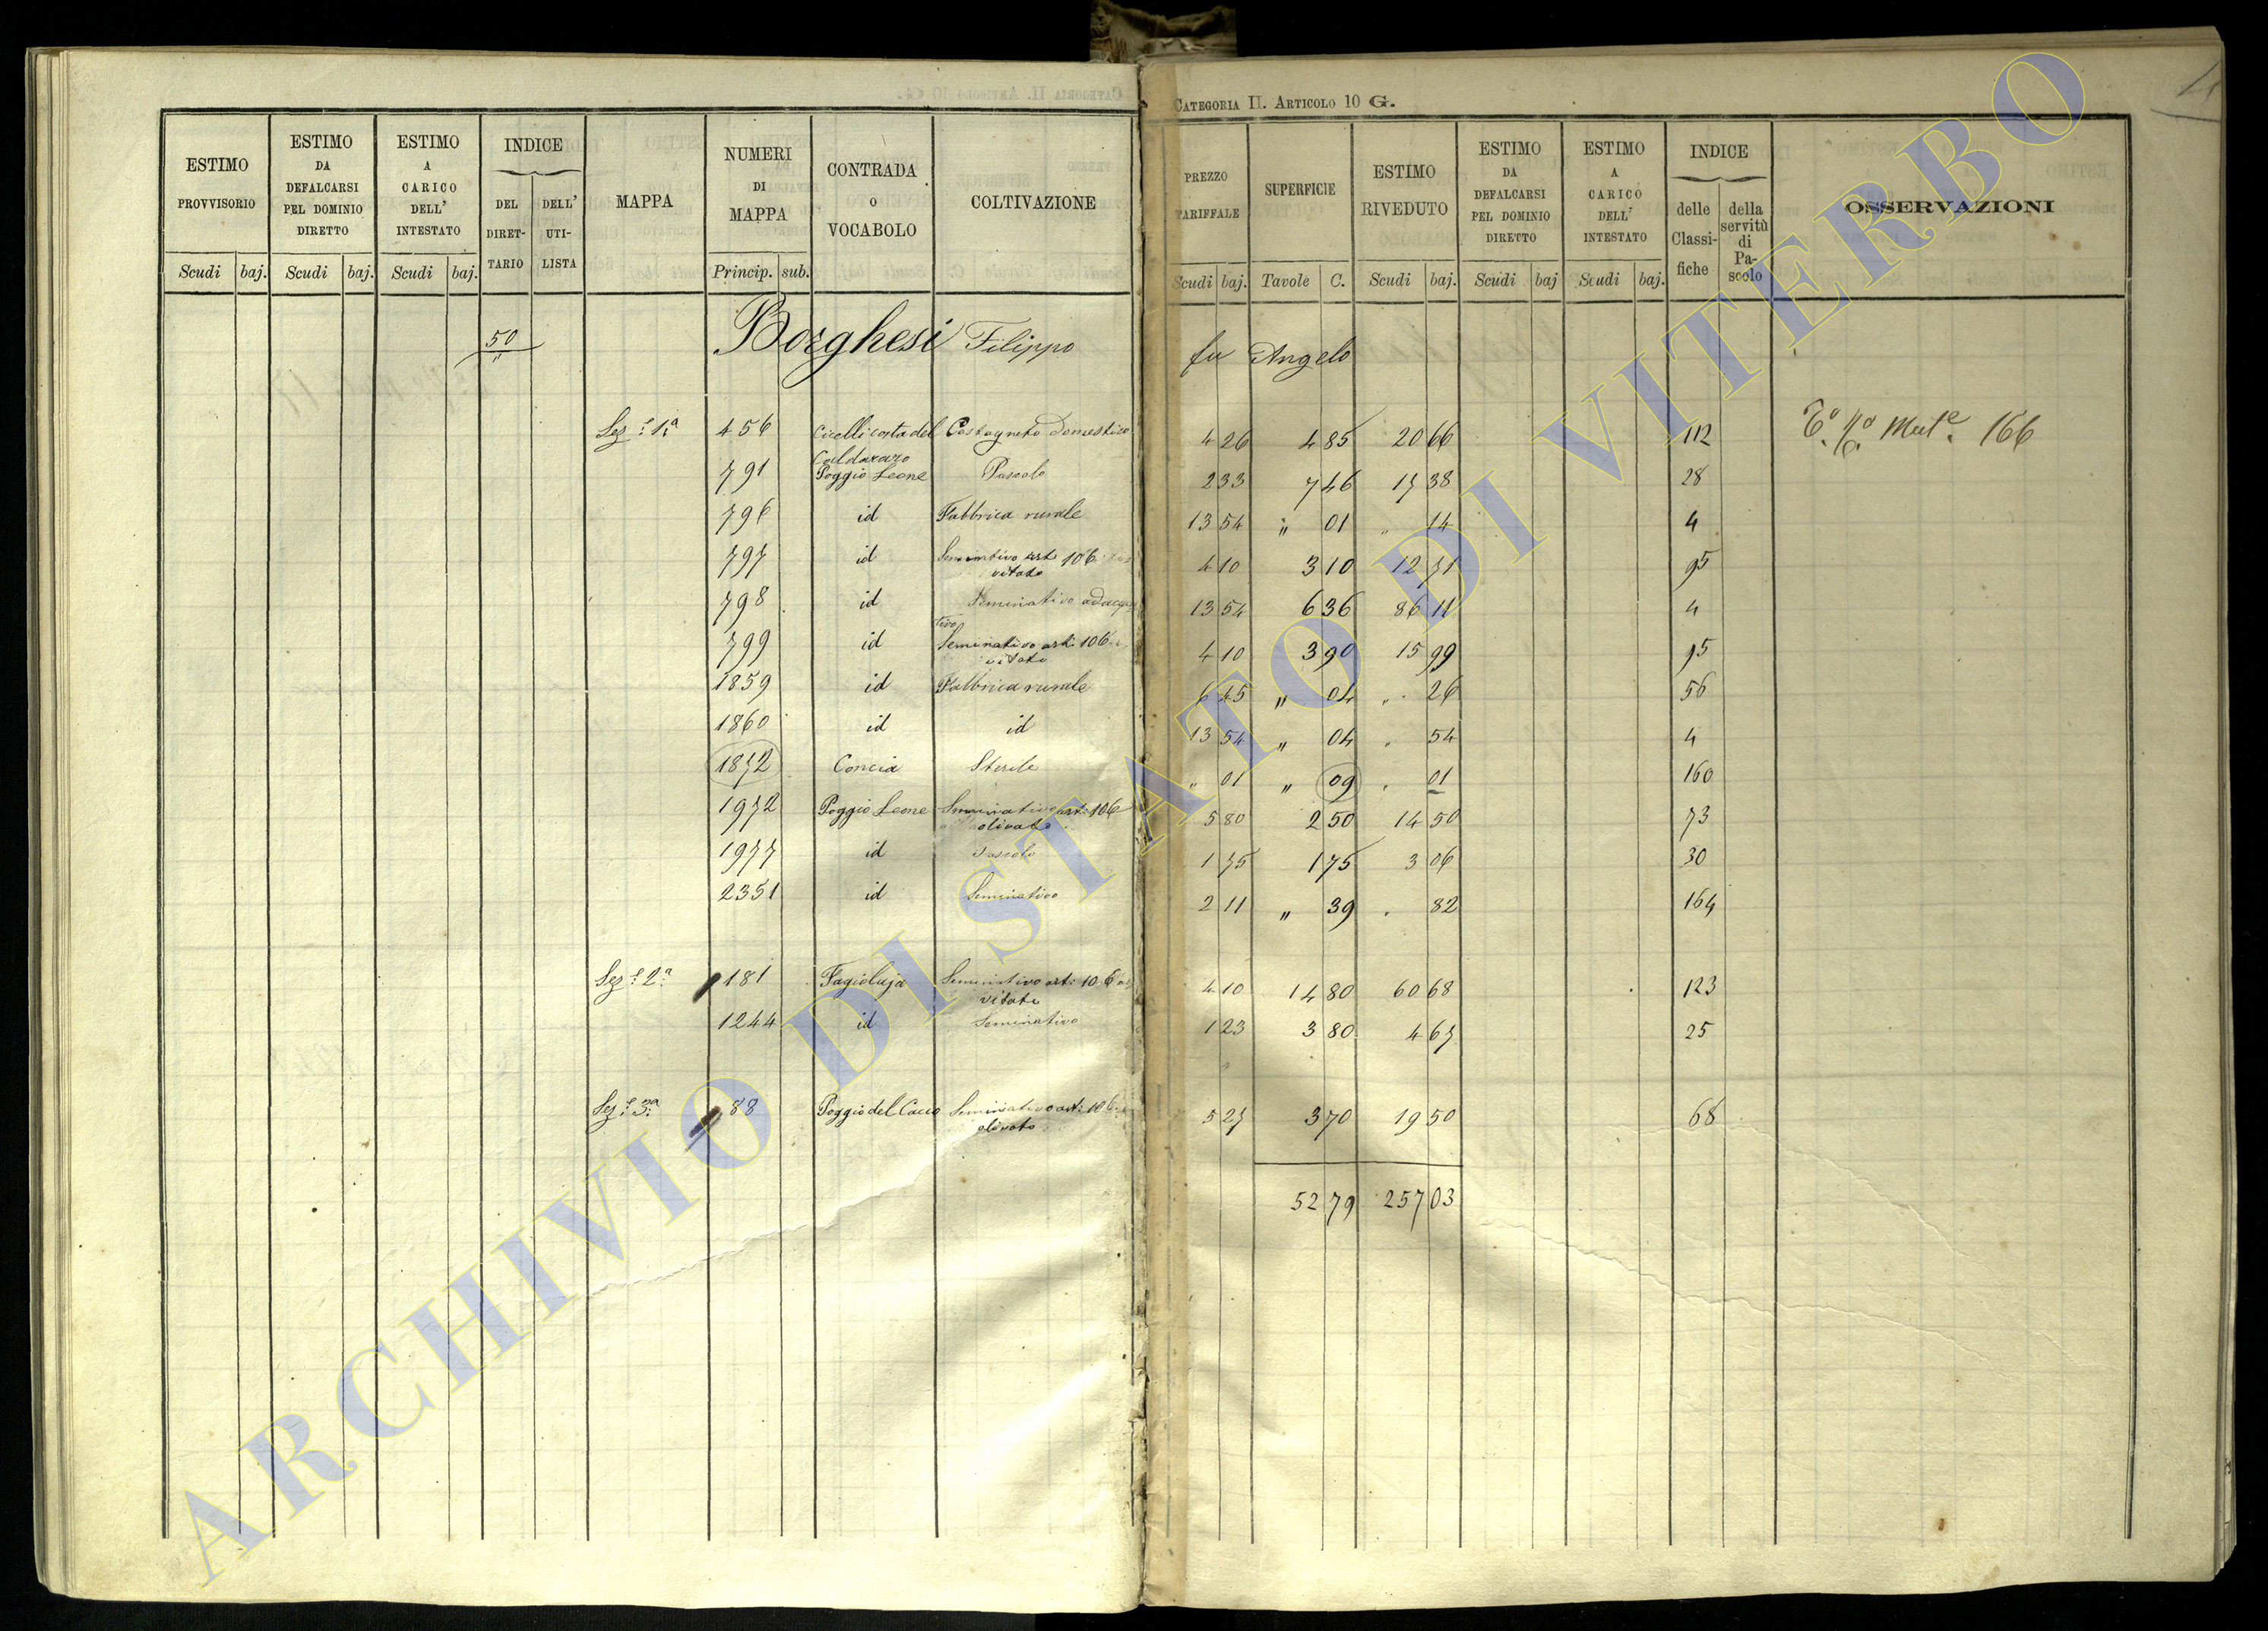 CATEGORIA II. ARTICOLO 10 G.
ESTIMO PROVVISORIO Scudi baj.
ESTIMO DA DEFALCARSI PEL DOMINIO DIRETTO Scudi baj.
ESTIMO A CARICO DELL' INTESTATO Scudi baj.
INDICE DEL DIRET-TARIO DELL' UTI-LISTA
MAPPA
NUMERI DI MAPPA Princip. sub.
CONTRADA O VOCABOLO
COLTIVAZIONE
PREZZO TARIFFALE Scudi baj.
SUPERFICIE Tavole C.
ESTIMO RIVEDUTO Scudi baj.
ESTIMO DA DEFALCARSI PEL DOMINIO DIRETTO Scudi baj
ESTIMO A CARICO DELL' INTESTATO Scudi baj.
INDICE delle Classi-fiche della servitù di Pa-scolo
OSSERVAZIONI
50 Borghesi Filippo fu Angelo
Sez.e 1.a 456 Cicelli costa del Castagneto domestico 4 26 4 85 20 66 112 Mut.e 166
Caldararo
791 Poggio Leone Pascolo 2 33 7 46 17 38 28
796 id Fabbrica rurale 13 54 " 01 " 14 4
797 id Seminativo art. 106 4 10 3 10 12 71 95
vitato
798 id Seminativo adacqua 13 54 6 36 86 11 4
tivo
799 id Seminativo art. 106 4 10 3 90 15 99 95
vitato
1859 id Fabbrica rurale 6 45 " 04 " 26 56
1860 id id 13 54 " 04 " 54 4
1872 Concia Sterile " 01 " 09 " 01 160
1972 Poggio Leone Seminativo art. 106 5 80 2 50 14 50 73
olivato
1977 id Pascolo 1 75 1 75 3 06 30
2351 id Seminativo 2 11 " 39 " 82 164
Sez.e 2.a 181 Fagioluja Seminativo art. 106 4 10 14 80 60 68 123
vitato
1244 id Seminativo 1 23 3 80 4 67 25
Sez.e 3.a 88 Poggio del Cucco Seminativo art. 106 5 27 3 70 19 50 68
olivato
52 79 257 03
ARCHIVIO DI STATO DI VITERBO